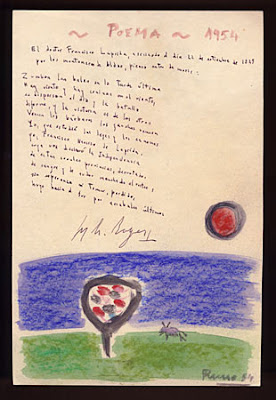 ~ POEMA ~ 1954
El doctor Francisco Laprida, asesinado el día 22 de setiembre de 1829
por los montoneros de Aldao, piensa antes de morir:
Zumban las balas en la tarde última
Hay viento y hay cenizas en el viento,
se dispersan el día y la batalla
deforme, y la victoria es de los otros
Vencen los bárbaros, los gauchos vencen
Yo, que estudié las leyes y los cánones
yo, Francisco Narciso de Laprida,
cuya voz declaró la Independencia
de estas crueles provincias, derrotado,
de sangre y de sudor manchado el rostro,
sin esperanza ni temor, perdido,
huyo hacia el Sur por arrabales últimos